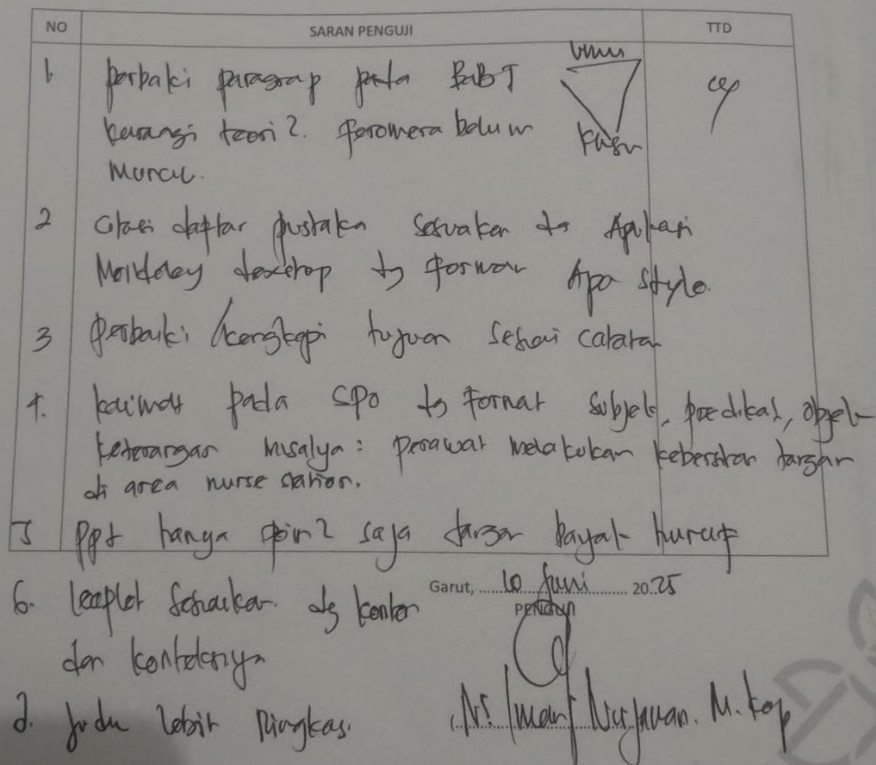 NO SARAN PENGUJI TTD
1. perbaiki paragrap pada BAB I Umum
kurangi teori2. fenomena belum Khusu
muncul.
2 Citasi daftar pustaka sesuaikan dg Aplikasi
Mendeley dekstop dg format Apa style.
3 perbaiki / lengkapi tujuan sesuai catatan
4. kalimat pada SPO dg format subjek, predikat, objek
keterangan misalya: perawat melakukan kebersihan tangan
di area nurse station.
5 ppt hanya poin2 saja jangan bayak huruf
6. leaplet sesuaikan dg konten
dan konteksnya
Garut, 10 Juni 2025
Penguji
7. Judu lebih Ringkas.
Ns. Iman Nurjaman. M.Kep